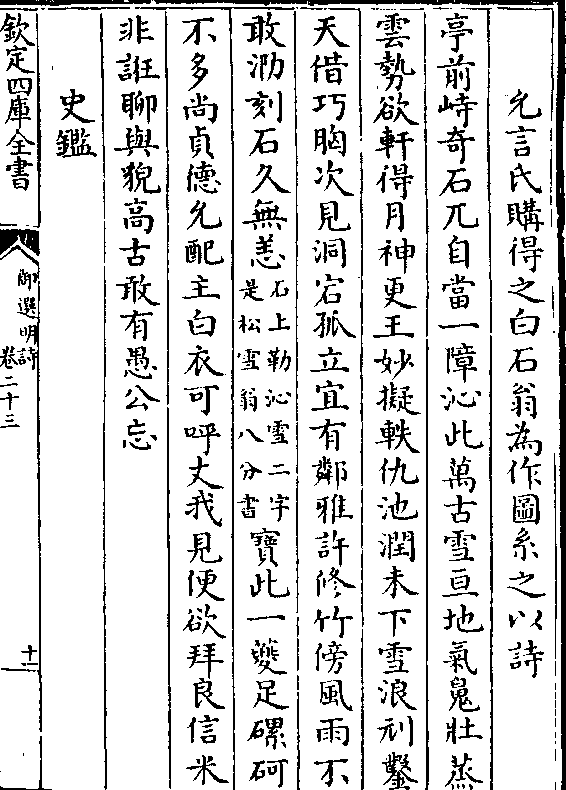 允言氏購得之白石翁為作圖系之以詩
亭前峙奇石兀自當一障沁此萬古雪亘地氣鬼壯蒸
雲勢欲軒得月神更王妙擬軼仇池潤未下雪浪刓鑿
天借巧胸次見洞宕孤立宜有鄰雅許修竹傍風雨不
敢泐刻石久無恙石上勒沁雪二字是松雪翁八分書寶此一夔足磥砢
不多尚貞德允配主白衣可呼丈我見便欲拜良信米
非誑聊與貌高古敢有愚公忘
史鑑
欽定四庫全書
御選明詩
卷二十三
十一